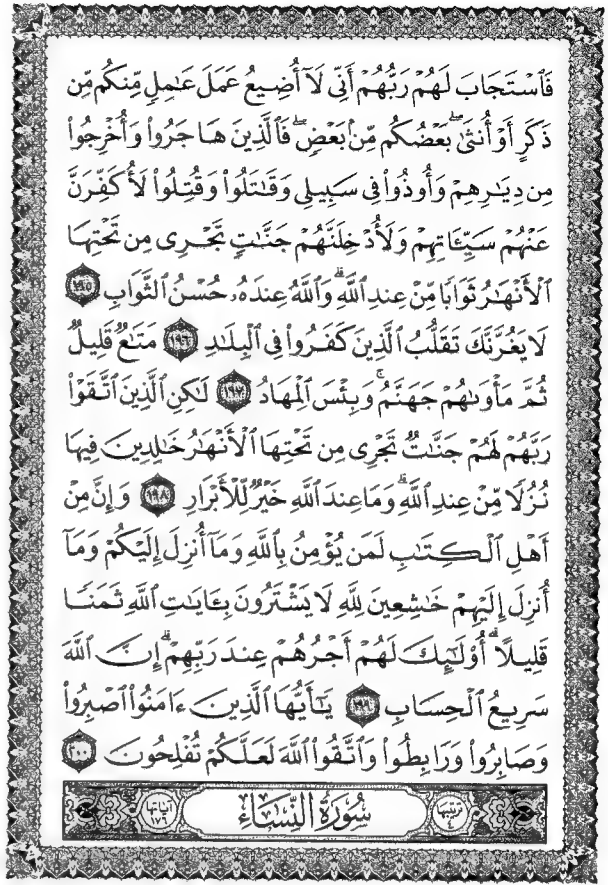 فَٱسْتَجَابَ لَهُمْ رَبُّهُمْ أَنِّي لَآ أُضِيعُ عَمَلَ عَٰمِلٍ مِّنكُم مِّن
ذَكَرٍ أَوْ أُنثَىٰۖ بَعْضُكُم مِّنۢ بَعْضٍۖ فَٱلَّذِينَ هَاجَرُوا۟ وَأُخْرِجُوا۟
مِن دِيَٰرِهِمْ وَأُوذُوا۟ فِي سَبِيلِي وَقَٰتَلُوا۟ وَقُتِلُوا۟ لَأُكَفِّرَنَّ
عَنْهُمْ سَيِّـَٔاتِهِمْ وَلَأُدْخِلَنَّهُمْ جَنَّٰتٍ تَجْرِي مِن تَحْتِهَا
ٱلْأَنْهَٰرُ ثَوَابًا مِّنْ عِندِ ٱللَّهِۗ وَٱللَّهُ عِندَهُۥ حُسْنُ ٱلثَّوَابِ ١٩٥
لَا يَغُرَّنَّكَ تَقَلُّبُ ٱلَّذِينَ كَفَرُوا۟ فِي ٱلْبِلَٰدِ ١٩٦ مَتَٰعٌ قَلِيلٌ
ثُمَّ مَأْوَىٰهُمْ جَهَنَّمُۚ وَبِئْسَ ٱلْمِهَادُ ١٩٧ لَٰكِنِ ٱلَّذِينَ ٱتَّقَوْا۟
رَبَّهُمْ لَهُمْ جَنَّٰتٌ تَجْرِي مِن تَحْتِهَا ٱلْأَنْهَٰرُ خَٰلِدِينَ فِيهَا
نُزُلًا مِّنْ عِندِ ٱللَّهِۗ وَمَا عِندَ ٱللَّهِ خَيْرٌ لِّلْأَبْرَارِ ١٩٨ وَإِنَّ مِنْ
أَهْلِ ٱلْكِتَٰبِ لَمَن يُؤْمِنُ بِٱللَّهِ وَمَآ أُنزِلَ إِلَيْكُمْ وَمَآ
أُنزِلَ إِلَيْهِمْ خَٰشِعِينَ لِلَّهِ لَا يَشْتَرُونَ بِـَٔايَٰتِ ٱللَّهِ ثَمَنًا
قَلِيلًاۗ أُو۟لَٰٓئِكَ لَهُمْ أَجْرُهُمْ عِندَ رَبِّهِمْۗ إِنَّ ٱللَّهَ
سَرِيعُ ٱلْحِسَابِ ١٩٩ يَٰٓأَيُّهَا ٱلَّذِينَ ءَامَنُوا۟ ٱصْبِرُوا۟
وَصَابِرُوا۟ وَرَابِطُوا۟ وَٱتَّقُوا۟ ٱللَّهَ لَعَلَّكُمْ تُفْلِحُونَ ٢٠٠
ترتيبها ٤ سُورَةُ النِّسَاءِ آياتها ١٧٦